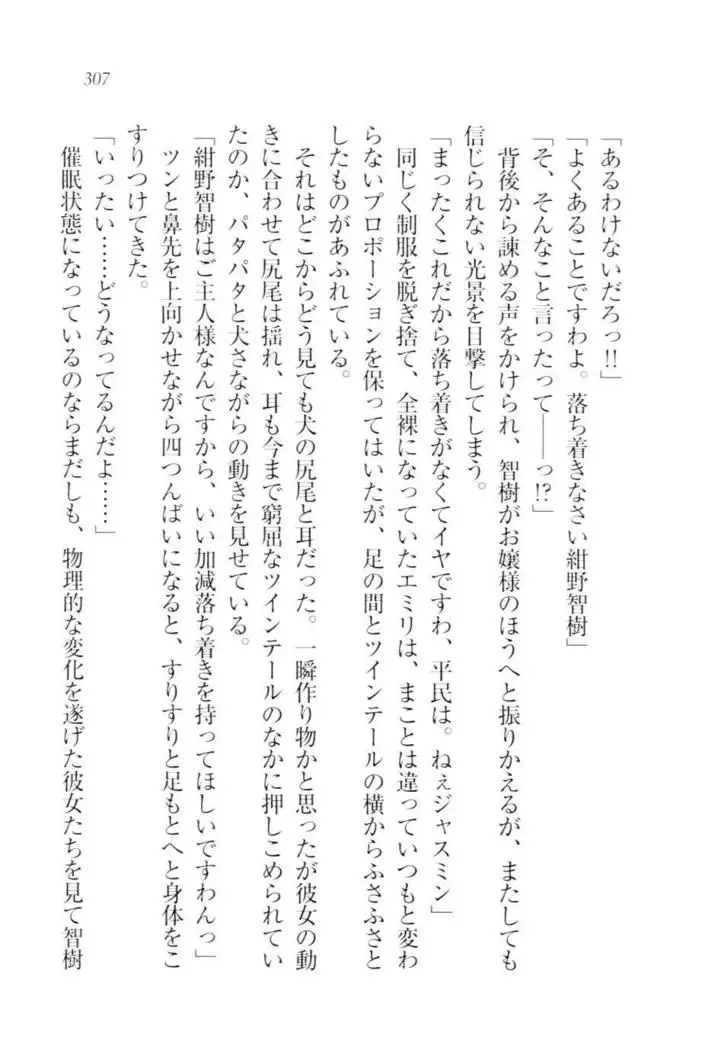 307
「あるわけないだろっ!!」
「よくあることですわよ。落ち着きなさい紺野智樹」
「そ、そんなこと言ったって——っ!?」
背後から諌める声をかけられ、智樹がお嬢様のほうへと振りかえるが、またしても
信じられない光景を目撃してしまう。
「まったくこれだから落ち着きがなくてイヤですわ、平民は。ねぇジャスミン」
同じく制服を脱ぎ捨て、全裸になっていたエミリは、まことは違っていつもと変わ
らないプロポーションを保ってはいたが、足の間とツインテールの横からふさふさと
したものがあふれている。
それはどこからどう見ても犬の尻尾と耳だった。一瞬作り物かと思ったが彼女の動
きに合わせて尻尾は揺れ、耳も今まで窮屈なツインテールのなかに押しこめられてい
たのか、パタパタと犬さながらの動きを見せている。
「紺野智樹はご主人様なんですから、いい加減落ち着きを持ってほしいですわんっ」
ツンと鼻先を上向かせながら四つんばいになると、すりすりと足もとへと身体をこ
すりつけてきた。
「いったい……どうなってるんだよ……」
催眠状態になっているのならまだしも、物理的な変化を遂げた彼女たちを見て智樹